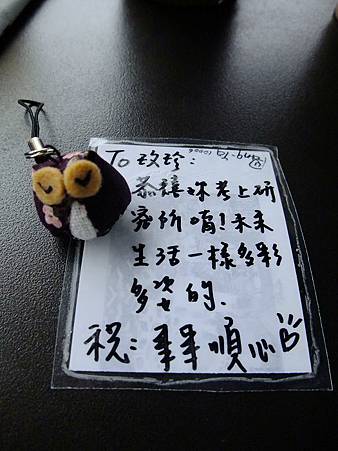 To 玫珍:
恭禧妳考上研
究所唷!未來
生活一樣多彩
多姿的.
祝:事事順心